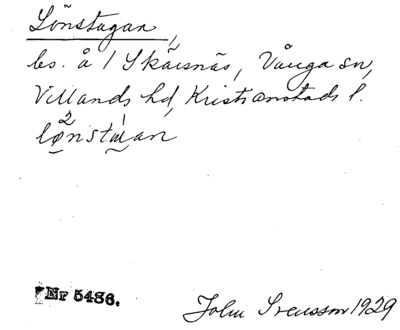 Lönstugan,
bs. å 1 Skärsnäs, Vånga sn,
Villands hd, Kristianstads l.
Nr 5486.
John Svensson 1929